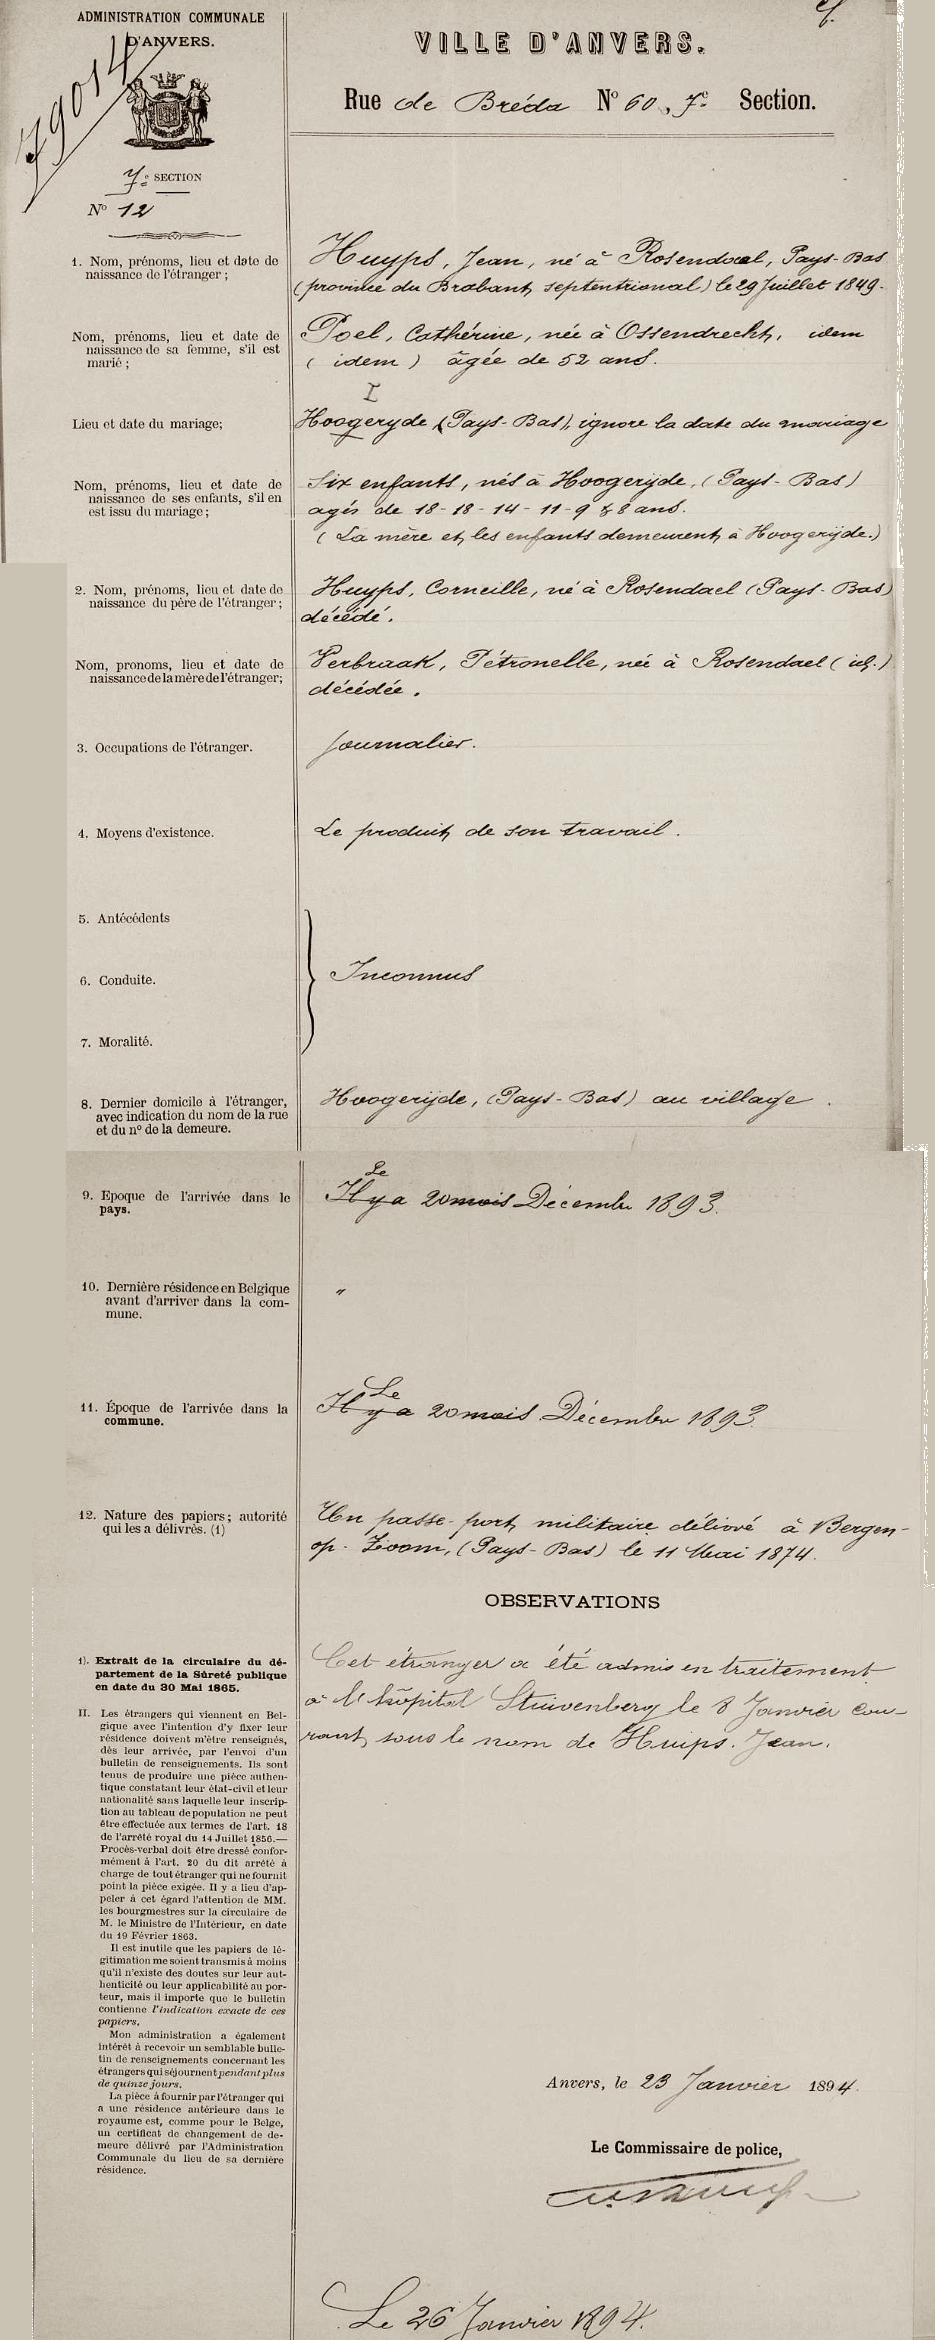 ADMINISTRATION COMMUNALE
D'ANVERS.
79014
7e SECTION
No 12
VILLE D'ANVERS.
Rue de Bréda No 60, 7e Section.
1. Nom, prénoms, lieu et date de
naissance de l'étranger;
Huyps, Jean, né à Rosendael, Pays-Bas
(province du Brabant septentrional) le 29 Juillet 1849.
Nom, prénoms, lieu et date de
naissance de sa femme, s'il est
marié;
Poel, Cathérine, née à Ossendrecht, idem
(idem) âgée de 52 ans.
Lieu et date du mariage;
Hoogeryde (Pays-Bas), ignore la date du mariage
Nom, prénoms, lieu et date de
naissance de ses enfants, s'il en
est issu du mariage;
Six enfants, nés à Hoogerijde, (Pays-Bas)
agés de 18-18-14-11-9 & 8 ans.
(La mère et les enfants demeurent à Hoogerijde.)
2. Nom, prénoms, lieu et date de
naissance du père de l'étranger;
Huyps, Corneille, né à Rosendael (Pays-Bas)
décédé.
Nom, pronoms, lieu et date de
naissance de la mère de l'étranger;
Verbraak, Pétronelle, née à Rosendael (id.)
décédée.
3. Occupations de l'étranger.
Journalier.
4. Moyens d'existence.
Le produit de son travail.
5. Antécédents
6. Conduite.
7. Moralité.
Inconnus
8. Dernier domicile à l'étranger,
avec indication du nom de la rue
et du no de la demeure.
Hoogerijde, (Pays-Bas) au village.
9. Epoque de l'arrivée dans le
pays.
Le
Il y a 20 mois Décembre 1893.
10. Dernière résidence en Belgique
avant d'arriver dans la com-
mune.
"
11. Époque de l'arrivée dans la
commune.
Le
Il y a 20 mois Décembre 1893.
12. Nature des papiers; autorité
qui les a délivrés. (1)
Un passe-port militaire délivré à Bergen-
op-Zoom, (Pays-Bas) le 11 Mai 1874.
OBSERVATIONS
Cet étranger a été admis en traitement
à l'hôpital Stuivenberg le 8 Janvier cou-
rant sous le nom de Huips. Jean.
1). Extrait de la circulaire du dé-
partement de la Sûreté publique
en date du 30 Mai 1865.
II. Les étrangers qui viennent en Bel-
gique avec l'intention d'y fixer leur
résidence doivent m'être renseignés,
dès leur arrivée, par l'envoi d'un
bulletin de renseignements. Ils sont
tenus de produire une pièce authen-
tique constatant leur état-civil et leur
nationalité sans laquelle leur inscrip-
tion au tableau de population ne peut
être effectuée aux termes de l'art. 18
de l'arrêté royal du 14 Juillet 1856.—
Procès-verbal doit être dressé confor-
mément à l'art. 20 du dit arrêté à
charge de tout étranger qui ne fournit
point la pièce exigée. Il y a lieu d'ap-
peler à cet égard l'attention de MM.
les bourgmestres sur la circulaire de
M. le Ministre de l'Intérieur, en date
du 19 Février 1863.
Il est inutile que les papiers de lé-
gitimation me soient transmis à moins
qu'il n'existe des doutes sur leur aut-
henticité ou leur applicabilité au por-
teur, mais il importe que le bulletin
contienne l'indication exacte de ces
papiers.
Mon administration a également
intérêt à recevoir un semblable bulle-
tin de renseignements concernant les
étrangers qui séjournent pendant plus
de quinze jours.
La pièce à fournir par l'étranger qui
a une résidence antérieure dans le
royaume est, comme pour le Belge,
un certificat de changement de de-
meure délivré par l'Administration
Communale du lieu de sa dernière
résidence.
Anvers, le 23 Janvier 1894.
Le Commissaire de police,
Le 26 Janvier 1894.